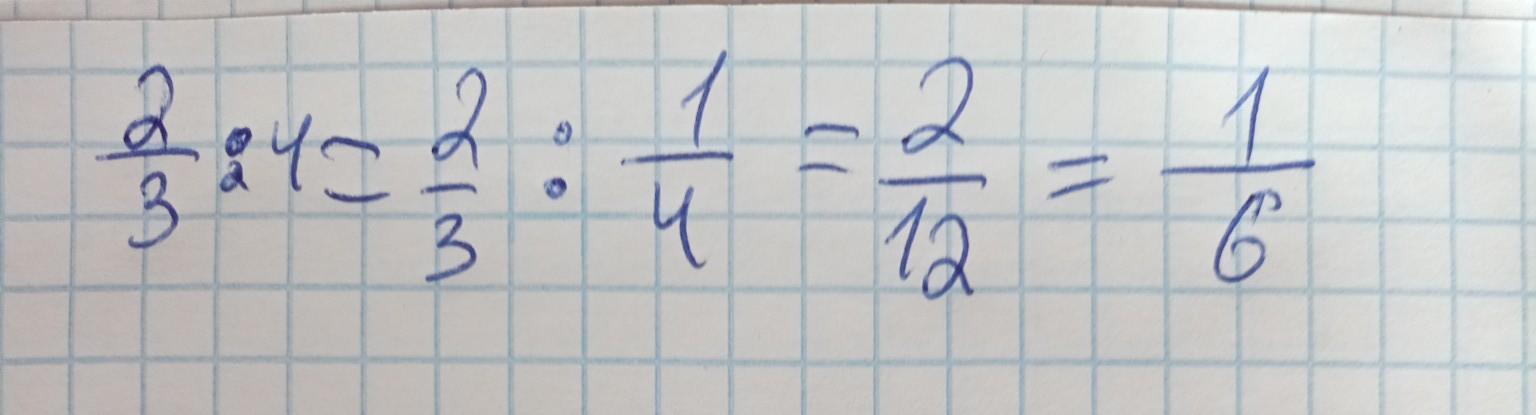 2/3 : 4 = 2/3 : 1/4 = 2/12 = 1/6